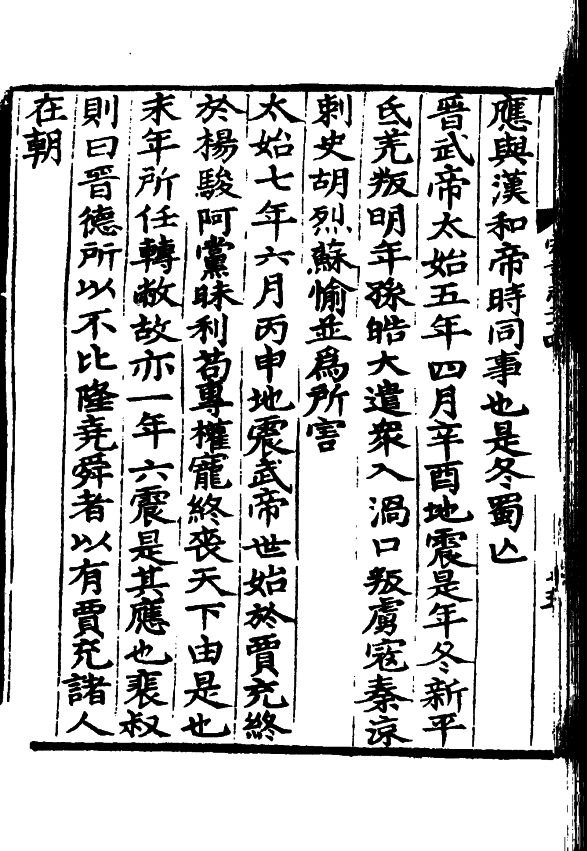 應與漢和帝時同事也是冬蜀亡
晉武帝太始五年四月辛酉地震是年冬新平
氐羌叛明年孫皓大遣衆入渦口叛虜寇秦涼
刺史胡烈蘇愉並爲所害
太始七年六月丙申地震武帝世始於賈充終
於楊駿阿黨昧利苟專權寵終喪天下由是也
末年所任轉敝故亦一年六震是其應也裴叔
則曰晉德所以不比隆堯舜者以有賈充諸人
在朝